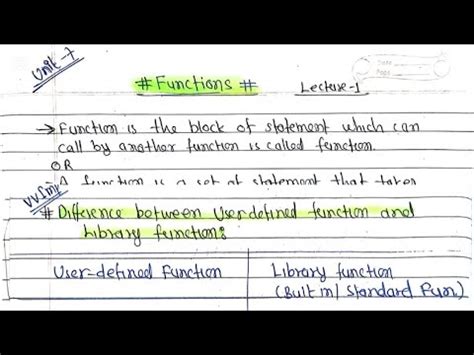 Unit-1
# Functions #
Lecture-1
→ Function is the block of statement which can
call by another function is called function.
OR
A function is a set of statement that takes
VVImp
# Difference between User defined function and
Library function:
User-defined Function
Library function
(Built in/ Standard Fun.)